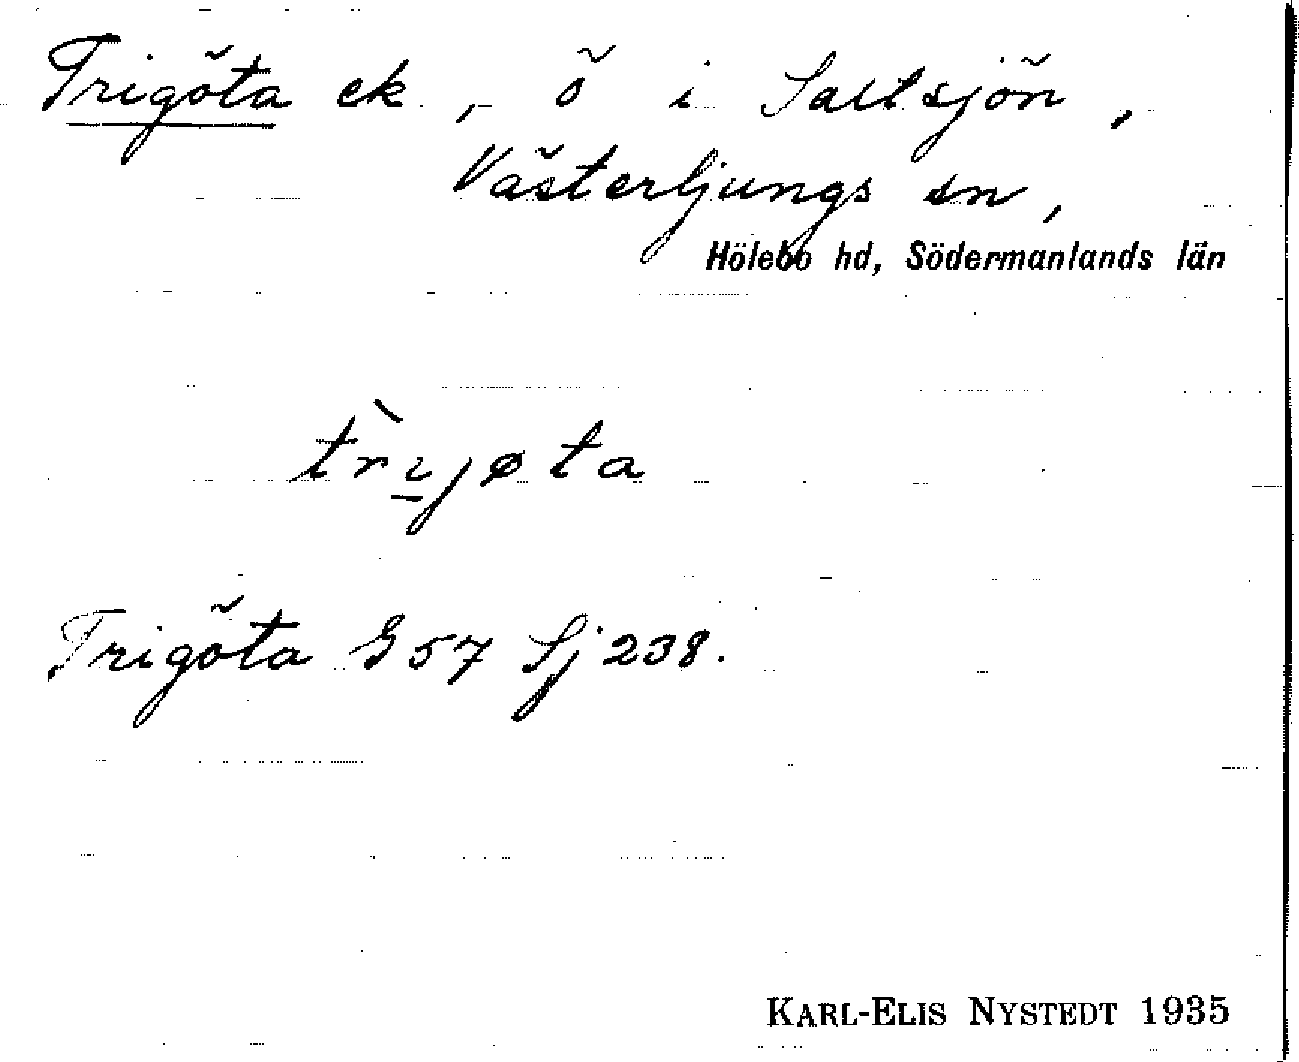 Trigöta ek., ö i Saltsjön,
Västerljungs sn,
Hölebo hd, Södermanlands län
trı̀jøta
Trigöta G 57 Sj 238.
KARL-ELIS NYSTEDT 1935